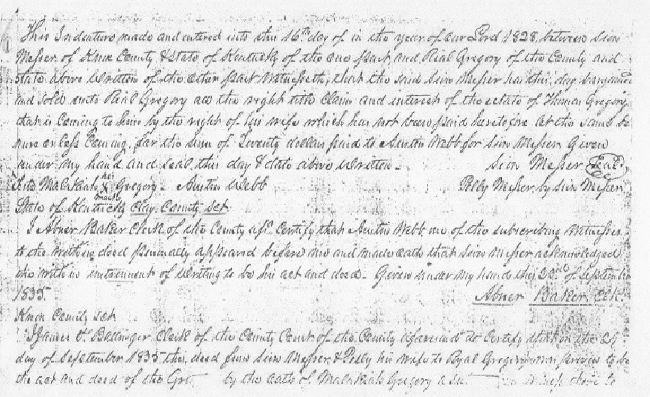 This Indenture made and entered into this 16th day of in the year of our Lord 1828 between Sion
Messer of Knox County & State of Kentucky of the one part and Rial Gregory of the County and
State above written of the other part Witnesseth, that the said Sion Messer hath this day bargained
and sold unto Rial Gregory all the right title Claim and interest of the estate of Thomas Gregory
that is Coming to him by the right of his wife which has not been paid heretofore be the same be
more or less Coming, for the sum of Seventy dollars paid to Austin Webb for Sion Messer Given
under my hand and seal this day & date above written. Sion Messer Seal
his
Malakiah X Gregory - Austin Webb Polly Messer by Sion Messer
mark
State of Kentucky Clay County Sct
I Abner Baker Clerk of the County afsd. Certify that Austin Webb one of the subscribing witnesses
to the within deed personally appeared before me and made oath that Sion Messer acknowledged
the within instrument of writing to be his act and deed. Given under my hand this 22nd of September
1835. Abner Baker, Clk.
Knox County Sct
I James Ballinger Clerk of the County Court of the County aforesaid do Certify that on the
day of September 1835 this deed from Sion Messer & Polly his wife to Ryal Gregory was proven to be
the act and deed of the by the oath of Malakiah Gregory a